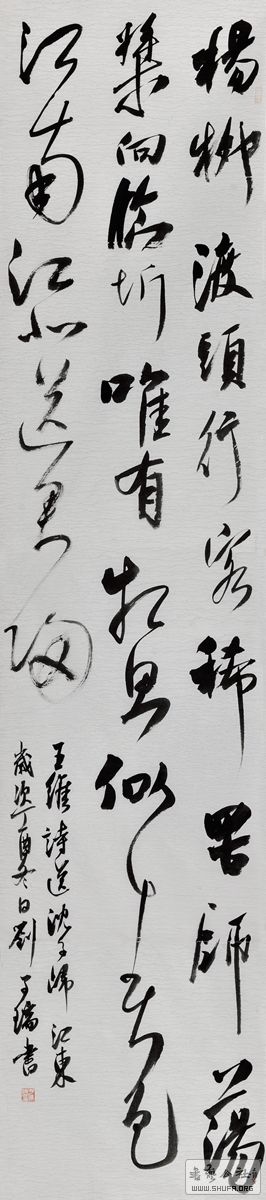 楊柳渡頭行客稀罟師蕩
槳向臨圻唯有相思似春色
江南江北送君歸
王維詩送沈子歸江東
歲次丁酉冬日劉子瑞書
WWW.SHUFA.ORG